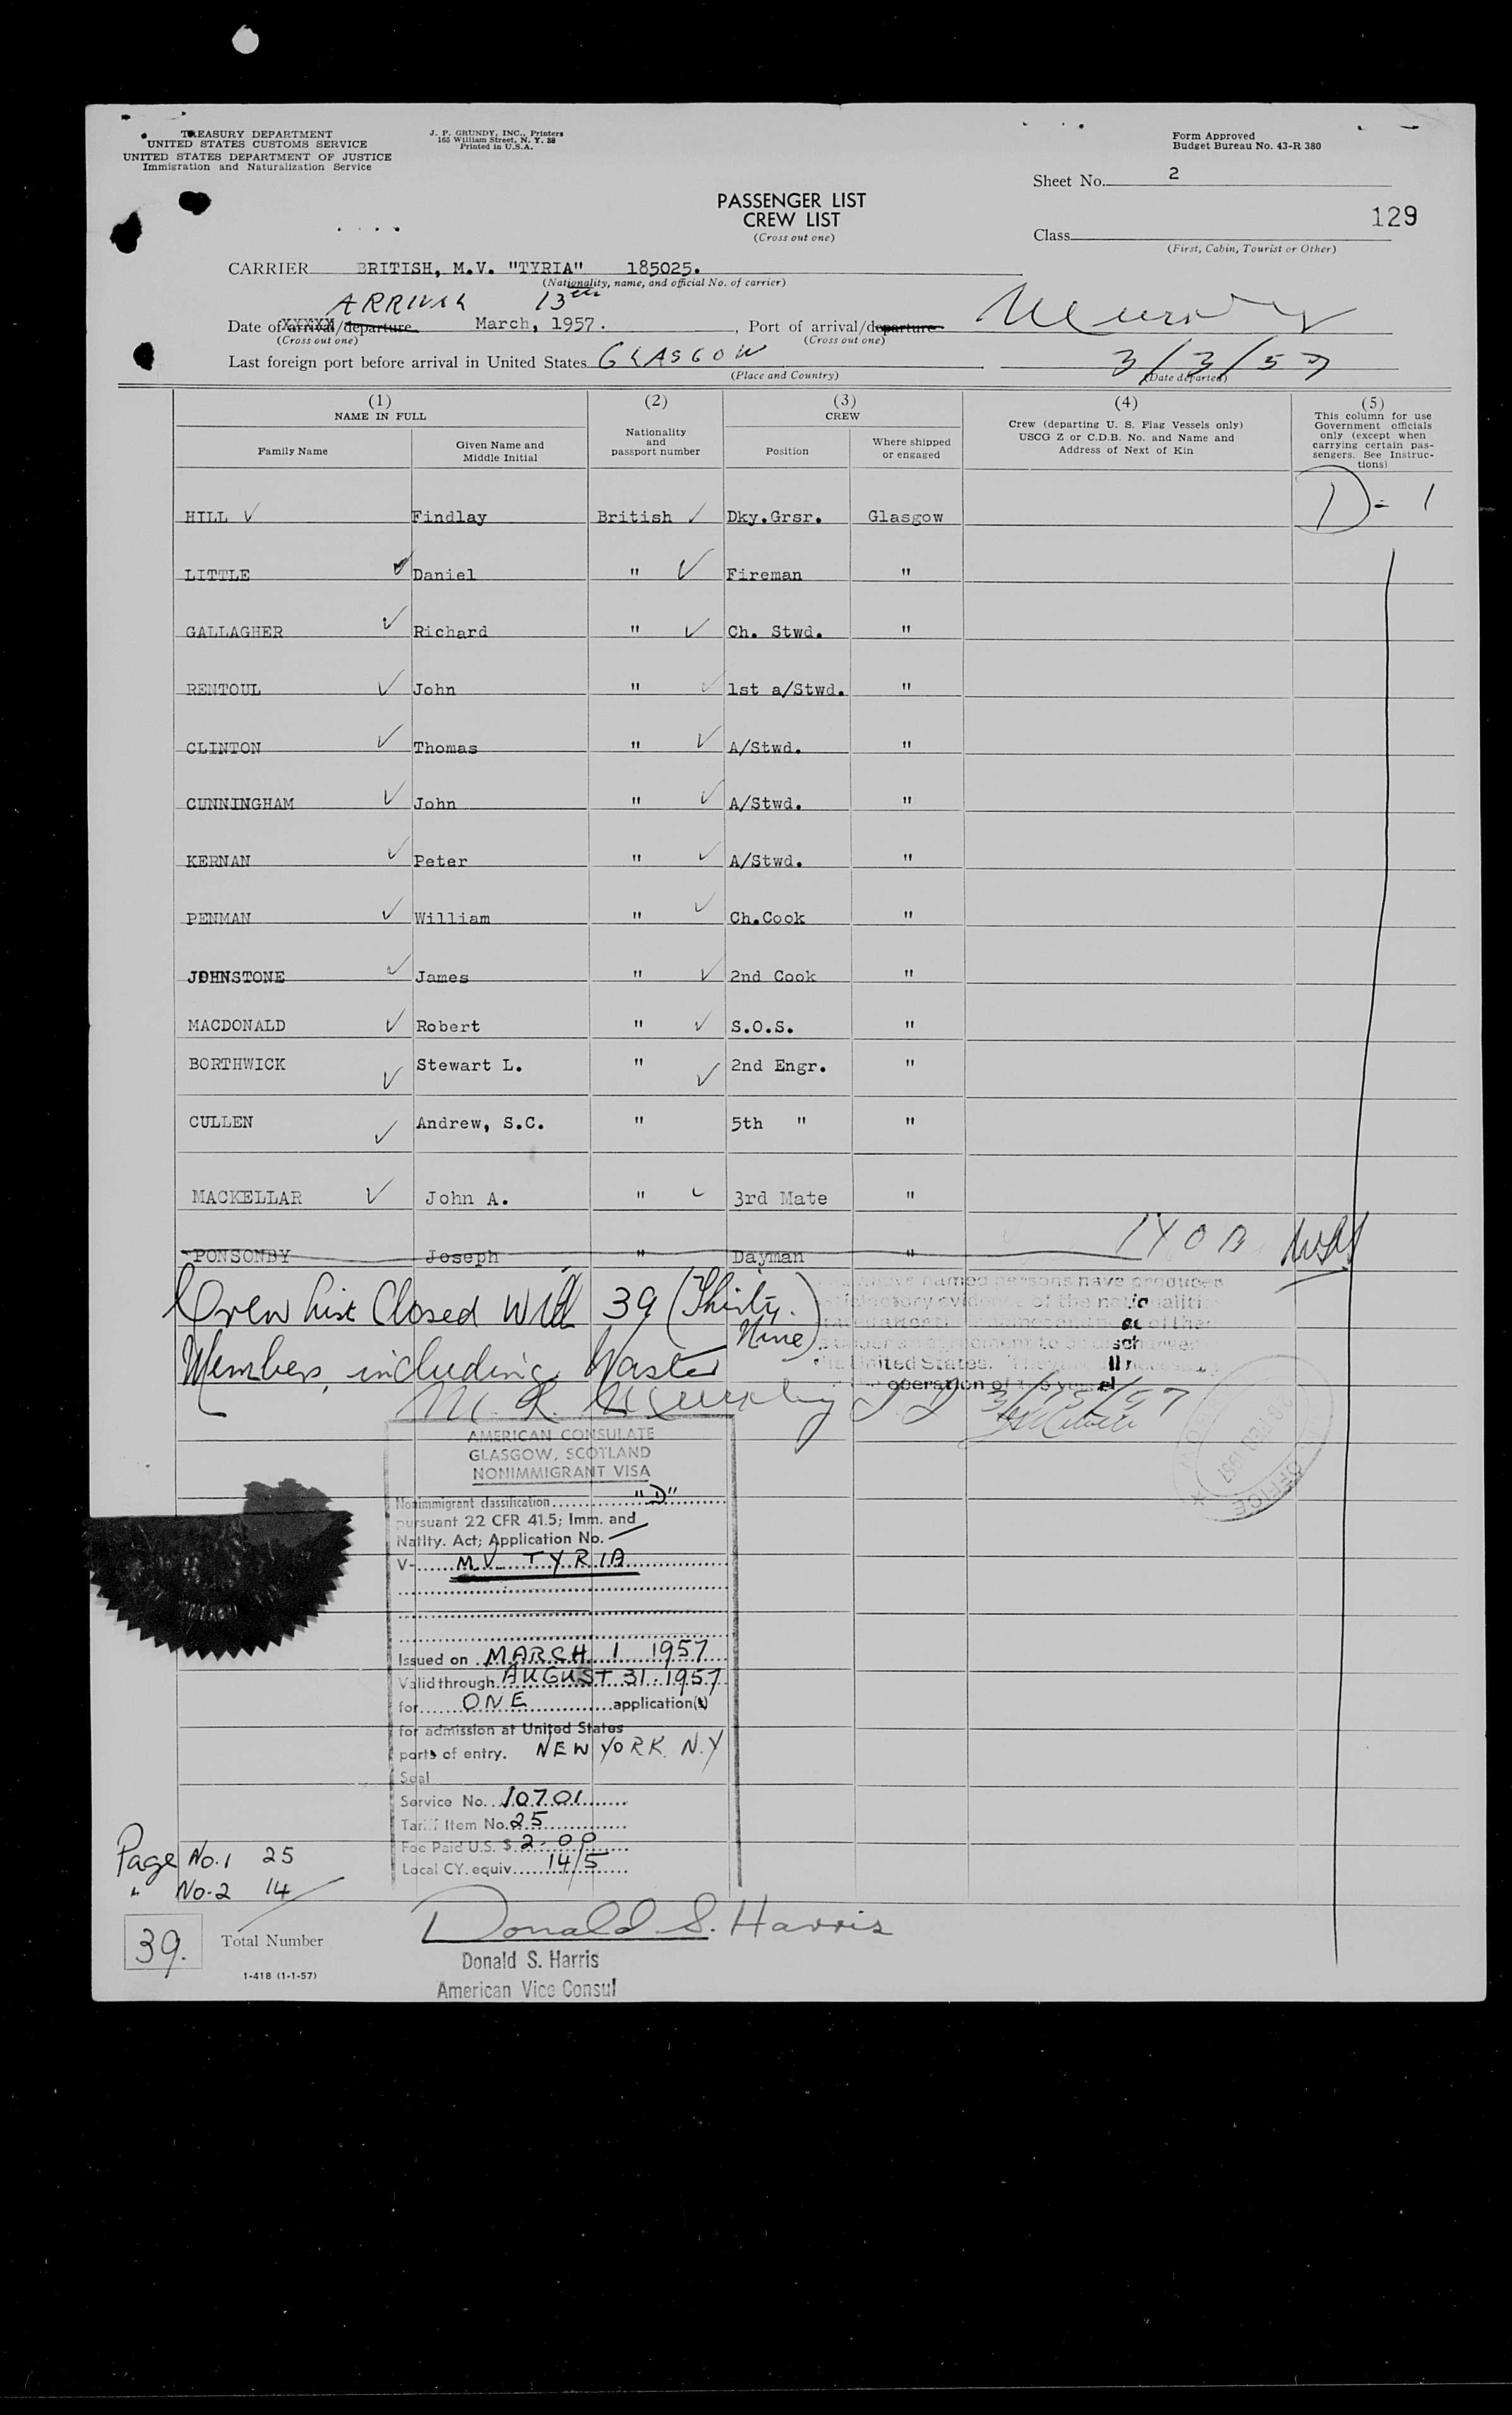 TREASURY DEPARTMENT
UNITED STATES CUSTOMS SERVICE
UNITED STATES DEPARTMENT OF JUSTICE
Immigration and Naturalization Service
J. P. GRUNDY, INC., Printers
165 William Street, N. Y. 38
Printed in U.S.A.
Form Approved
Budget Bureau No. 43-R 380
Sheet No. 2
PASSENGER LIST
CREW LIST
(Cross out one)
129
Class
(First, Cabin, Tourist or Other)
CARRIER BRITISH, M.V. "TYRIA" 185025.
(Nationality, name, and official No. of carrier)
ARRIVAL 13th
Date of arrival/departure March, 1957. , Port of arrival/departure
(Cross out one) (Cross out one)
Last foreign port before arrival in United States GLASGOW 3/3/57
(Place and Country) (Date departed)
(1) (2) (3) (4) (5)
NAME IN FULL
Family Name
Given Name and Middle Initial
Nationality and passport number
CREW
Position
Where shipped or engaged
Crew (departing U. S. Flag Vessels only)
USCG Z or C.D.B. No. and Name and
Address of Next of Kin
This column for use
Government officials
only (except when
carrying certain pas-
sengers. See Instruc-
tions)
HILL Findlay British Dky.Grsr. Glasgow D = 1
LITTLE Daniel " Fireman "
GALLAGHER Richard " Ch. Stwd. "
RENTOUL John " 1st a/Stwd. "
CLINTON Thomas " A/Stwd. "
CUNNINGHAM John " A/Stwd. "
KERNAN Peter " A/Stwd. "
PENMAN William " Ch.Cook "
JOHNSTONE James " 2nd Cook "
MACDONALD Robert " S.O.S. "
BORTHWICK Stewart L. " 2nd Engr. "
CULLEN Andrew, S.C. " 5th " "
MACKELLAR John A. " 3rd Mate "
PONSONBY Joseph " Dayman "
Crew List Closed With 39 (Thirty.
Nine)
Members, including Master
named persons have produced
evidence of the nationalit
United States.
operation of
3/13/57
AMERICAN CONSULATE
GLASGOW, SCOTLAND
NONIMMIGRANT VISA
Nonimmigrant classification "D"
pursuant 22 CFR 41.5; Imm. and
Natlty. Act; Application No.
V- M.V. TYRIA
Issued on MARCH 1 1957
Valid through AUGUST 31.1957
for ONE application(s)
for admission at United States
ports of entry. NEW YORK N.Y
Seal
Service No. 10701
Tariff Item No. 25
Fee Paid U.S. $ 2.00
Local CY. equiv. 14/5
OFFICE
Page No.1 25
" No.2 14
39. Total Number
1-418 (1-1-57)
Donald S. Harris
Donald S. Harris
American Vice Consul